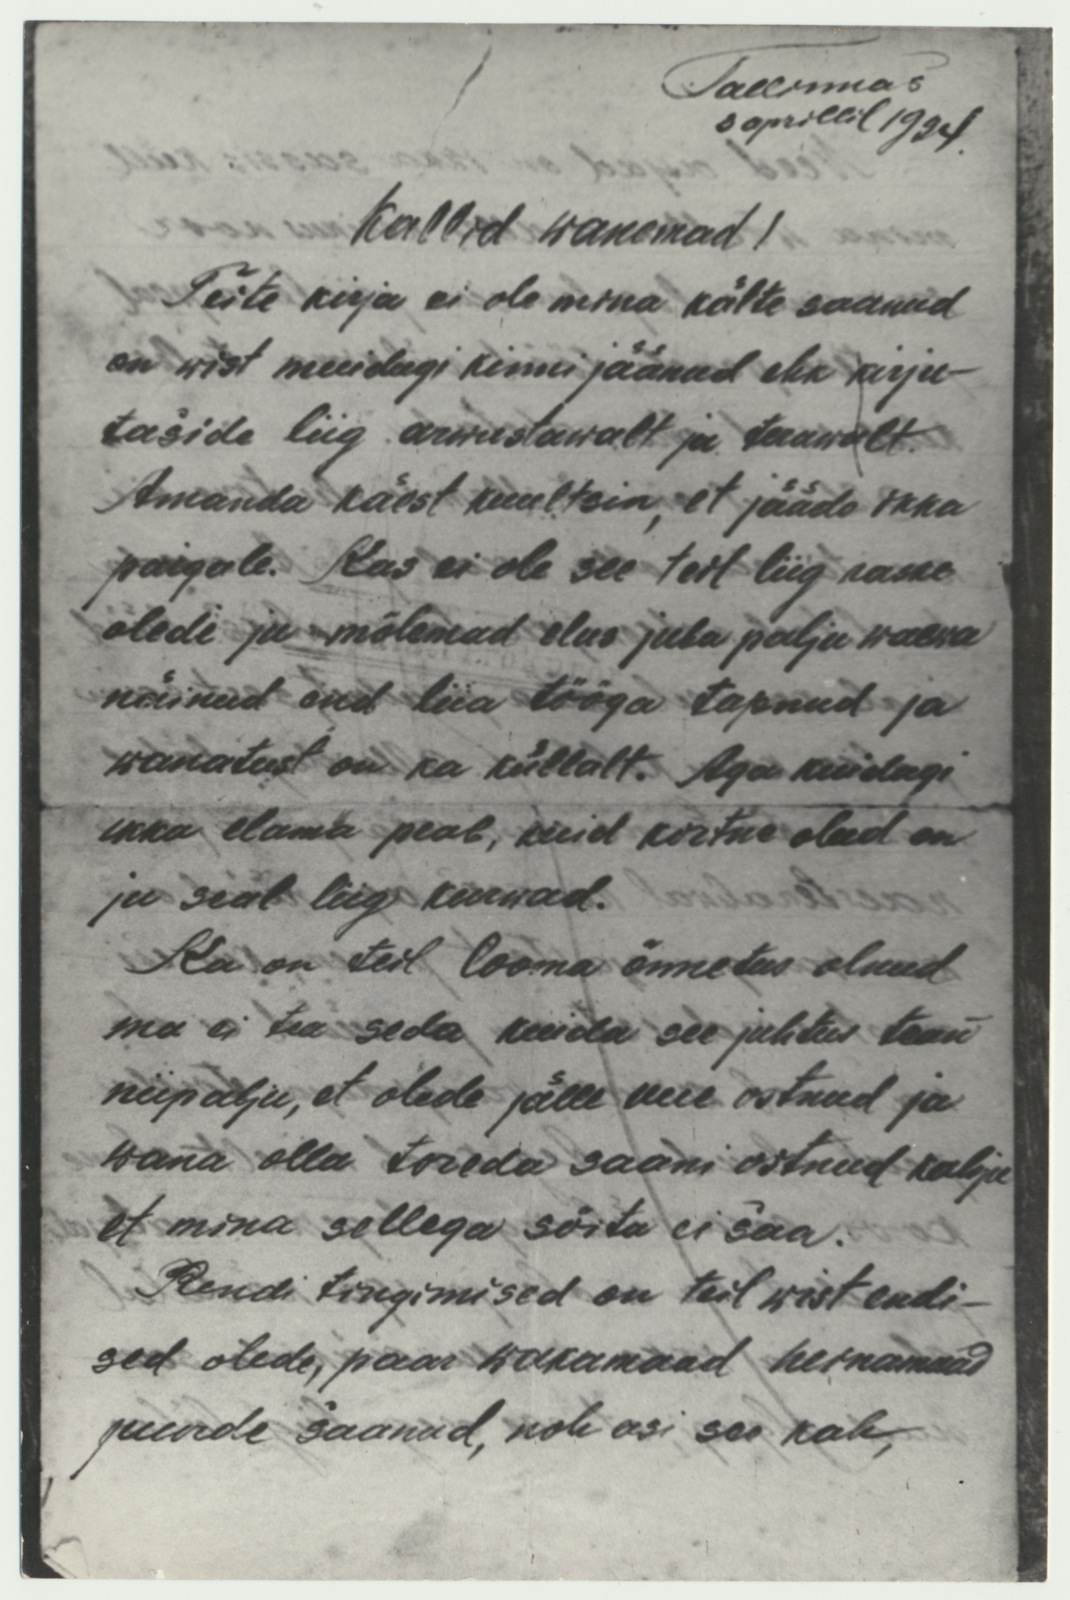 Tallinnas
3 aprillil 1924.
Kallid wanemad!
Teite kirja ei ole mina kätte saanud
on wist muidugi kinni jäänud ehk kirju-
taside liig arwustawalt ja taawalt.
Amanda käest kuultsin, et jääde ikka
paigale. Kas ei ole see teil liig raske
olede ju mõlemad elus juba palju waewa
näinud end liia tööga tapnud ja
wanatust on ka küllalt. Aga kuidagi
ikka elama peab, kuid kortne olud on
ju seal liig kurwad.
Ka on teil looma õnnetus olnud
ma ei tea seda kuida see juhtus tean
niipalju, et olede jälle uue ostnud ja
wana olla toreda saani ostnud kahju
et mina sellega sõita ei saa.
Rendi tingimised on teil wist endi-
sed olede, paar wakamaad heinamaad
juurde saanud, noh asi see kah,